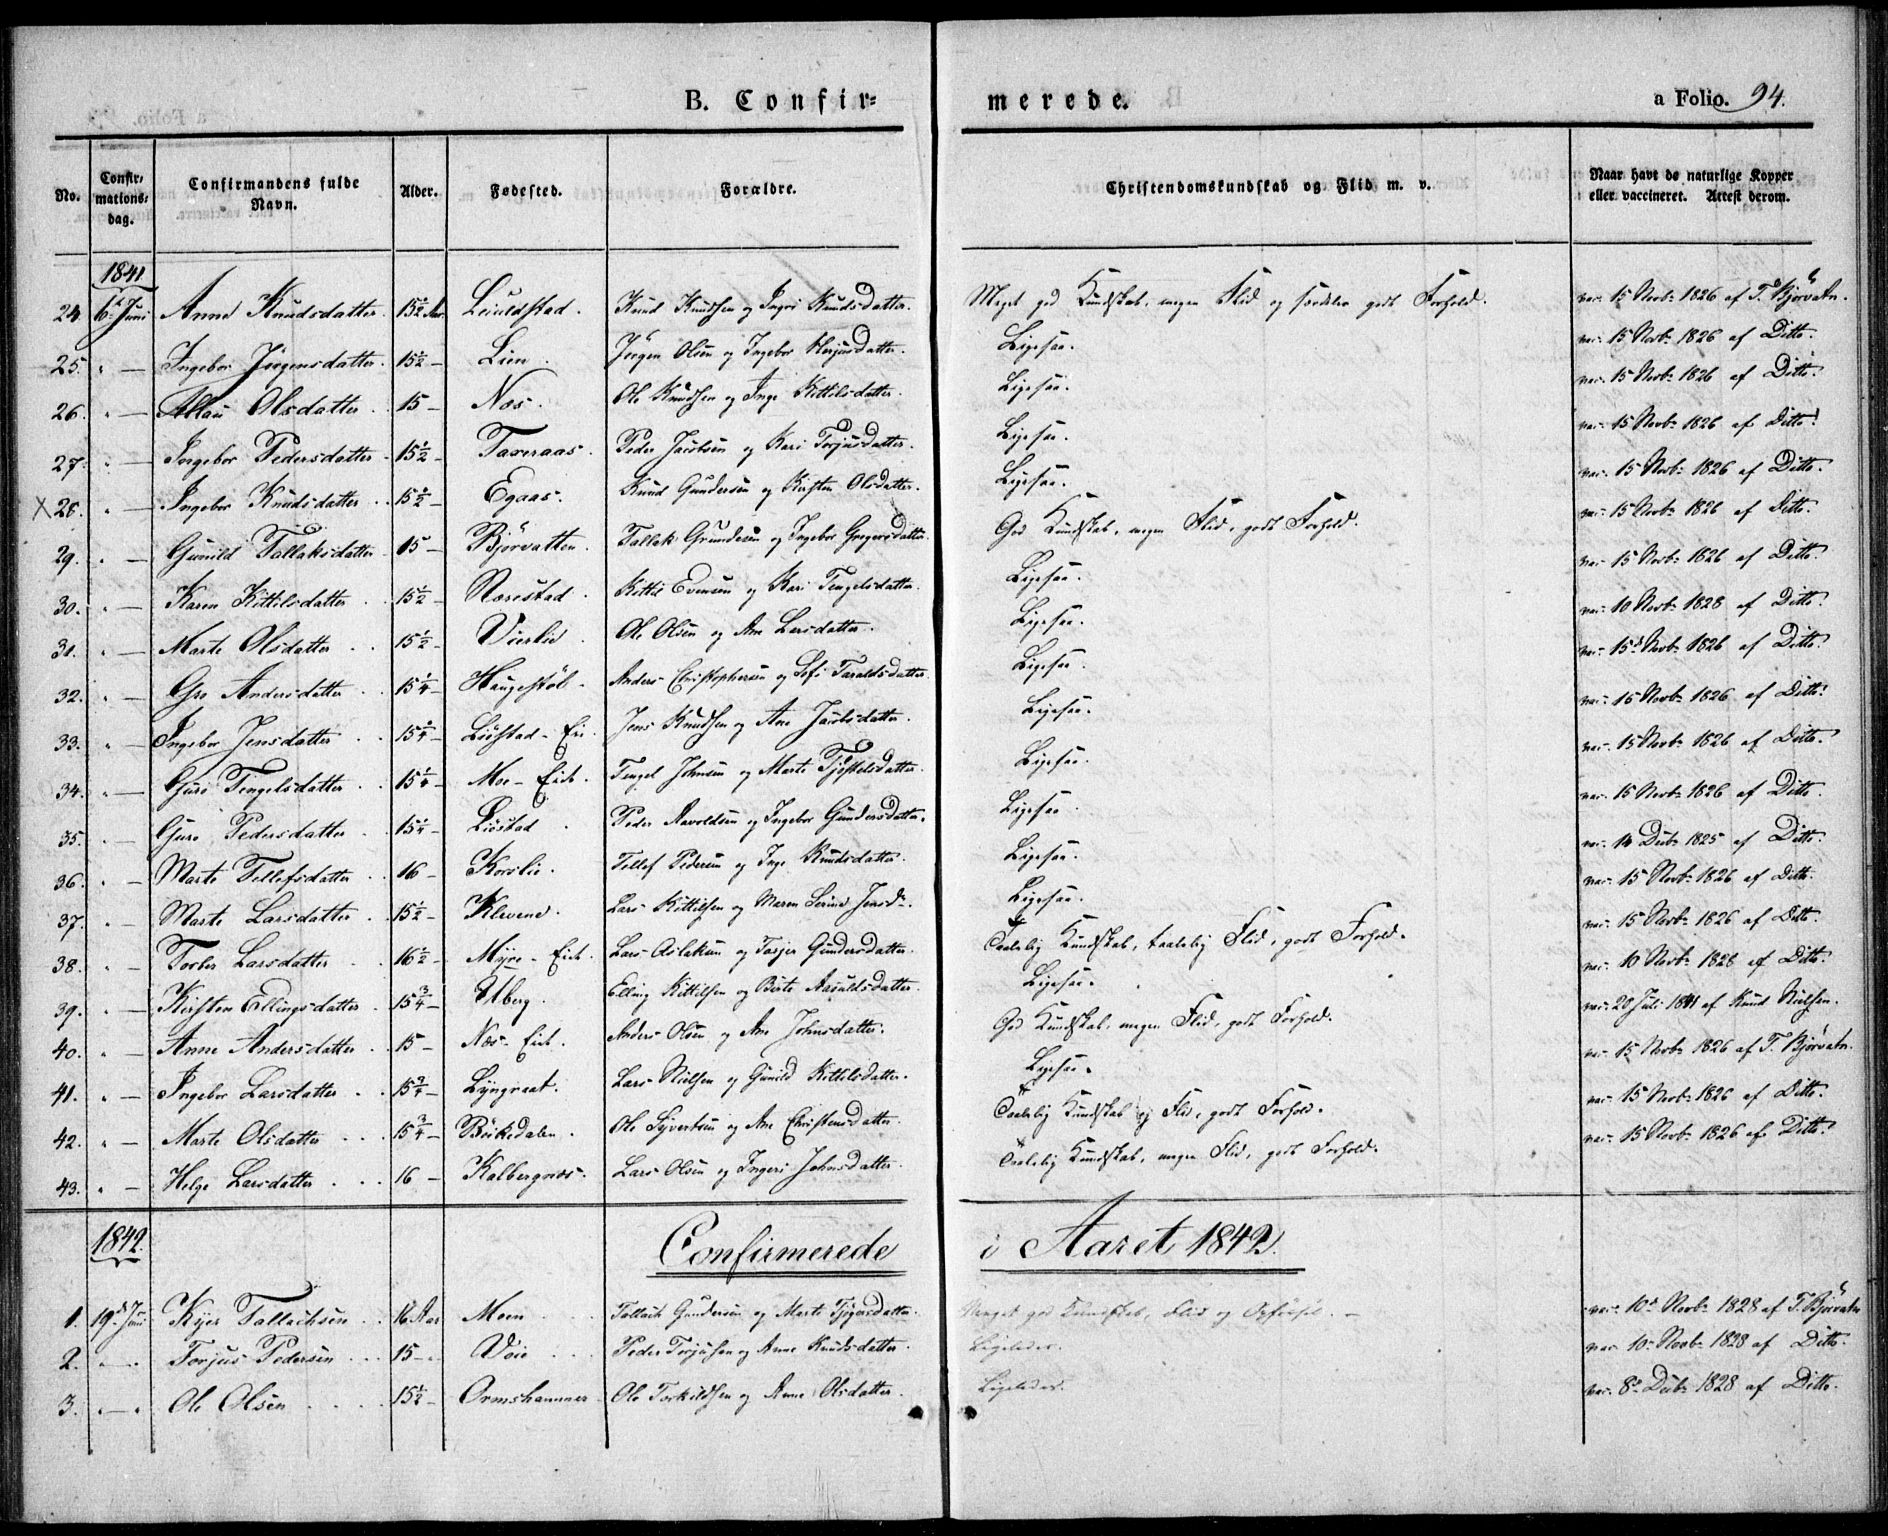 B. Confirmerede.
a Folio. 94.
No. Confirmationsdag. Confirmandens fulde Navn. Alder. Fødested. Forældre. Christendomskundskab og Flid m. v. Naar havt de naturlige Kopper eller vaccineret. Attest derom.
1841
24. 6t Juni Anne Knudsdatter. 15½ Aar. Leiuldstad. Knud Knudsen og Ingri Knudsdatter. Meget god Kundskab, megen Flid og særdeles godt Forhold. vac. 15 Novb: 1826 af T. Bjørvatn.
25. " — Ingebor Jörgensdatter. 15½ — Lien. Jörgen Olsen og Ingebor datter. Ligesaa. vac. 15 Novb: 1826 af Ditto.
26. " — Olsdatter. 15 — Næs. Ole Knudsen og Inge Kittilsdatter. Ligesaa. vac. 15 Novb: 1826 af Ditto.
27. " — Ingebor Pedersdatter 15½ — Taxeraas. Peder Jacobsen og Kari Torjusdatter. Ligesaa. vac. 15 Novb: 1826 af Ditto.
X 28. " — Ingebor Knudsdatter 15½ — Egaas. Knud Gundersen og Kirsten Olsdatter. Ligesaa. vac. 15 Novb: 1826 af Ditto.
29. " — Gunild Tallaksdatter 15 — Bjørvatten. Tallak Grundesen og Ingebor Gregersdatter. God Kundskab, megen Flid, godt Forhold. vac. 15 Novb: 1826 af Ditto.
30. " — Karen Kittilsdatter 15½ — Rærestad. Kittil Evensen og Kari Tengelsdatter. Ligesaa. vac. 15 Novb: 1826 af Ditto.
31. " — Marte Olsdatter 15½ — Vierlid. Ole Olsen og Ane Larsdatter. Ligesaa. vac. 10 Novb: 1828 af Ditto.
32. " — Gro Andersdatter 15¼ — Haugestöl. Anders Christophersen og Sofi Taraldsdatter. Ligesaa. vac. 15d Novb: 1826 af Ditto.
33. " — Ingebor Jensdatter 15¼ — Liøstad - Jens Knudsen og Ane Jacobsdatter. Ligesaa. vac. 15 Novb: 1826 af Ditto.
34. " — Guri Tengelsdatter 15¼ — Moe - Eich. Tengel Johnsen og Marte Tjøstelsdatter. Ligesaa. vac. 15 Novb: 1826 af Ditto.
35. " — Guro Pedersdatter 15¼ — Liøstad Peder Aavoldsen og Ingebor Gundersdatter. Ligesaa. vac. 15 Novb: 1826 af Ditto.
36. " — Marte Tellefsdatter 16 — Korslie. Tellef Pedersen og Inge Knudsdatter. Ligesaa. vac. 14 Decb: 1825 af Ditto.
37. " — Marte Larsdatter 15½ — Klevene. Lars Kittilsen og Maren Serine Jensdr. Ligesaa. vac. 15 Novb: 1826 af Ditto.
38. " — Torbor Larsdatter 16½ — Myre - Eich. Lars Aslaksen og Tarjer Gundersdatter. Taalelig Kundskab, taalelig Flid, godt Forhold. vac. 15 Novb: 1826 af Ditto.
39. " — Kirsten Ellingsdatter 15¾ — Uberg. Elling Kittilsen og Birte Aasuldsdatter. Ligesaa. vac. 10 Novb: 1828 af Ditto.
40. " — Anne Andersdatter 15 — Næs - Eich. Anders Olsen og Ane Johnsdatter. God Kundskab, megen Flid, godt Forhold. vac. 20 Juli 1841 af Knud Nielsen.
41. " — Ingebor Larsdatter 15¾ — Lyngraat. Lars Nielsen og Gunild Kittilsdatter. Ligesaa. vac. 15 Novb: 1826 af T. Bjørvatn.
42. " — Marte Olsdatter 15¾ — Böikedalen. Ole Syvertsen og Ane Christensdatter. Taalelig Kundskab og Flid, godt Forhold. vac. 15 Novb: 1826 af Ditto.
43. " — Helge Larsdatter 16 — Kalbergnæs. Lars Olsen og Ingeri Johnsdatter. Taalelig Kundskab, megen Flid, godt Forhold. vac. 15 Novb: 1826 af Ditto.
1842. Confirmerede i Aaret 1842.
1. 19d Juni Tallachsen 16 Aar Moen Tallach Gundersen og Marte datter Meget god Kundskab, Flid og Opførsel. — vac. 10d Novb: 1828 af T. Bjørvatn
2. " — " Torjus Pedersen 15 — Voie Peder Torjusen og Anne Knudsdatter. Ligeledes. vac. 10 Novb: 1828 af Ditto.
3. " — " Ole Olsen 15½ — Ormshammer Ole Torkildsen og Anne Olsdatter. Ligeledes. vac. 8d Decb: 1828 af Ditto.